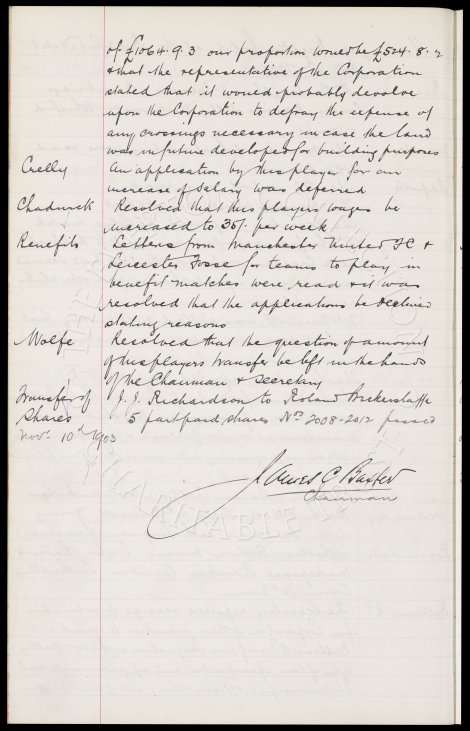 of £1064.9.3 our proportion would be £524.8.2
& that the representative of the Corporation
stated that it would probably devolve
upon the Corporation to defray the expense of
any crossings necessary in case the land
was in future developed for building purposes
Crelly An application by this player for an
increase of salary was deferred
Chadwick Resolved that this players wages be
increased to 35/- per week
Benefits Letters from Manchester United FC &
Leicester Fosse for teams to play in
benefit matches were read & it was
resolved that the applications be declined
stating reasons
Wolfe Resolved that the question of amount
of this players transfer be left in the hands
of the Chairman & Secretary
Transfer of J. J. Richardson to Roland Bickerstaffe
Shares 5 part paid shares Nos 2008-2012 passed
Nov. 10th 1903
James C Baxter
Chairman
CHARITABLE